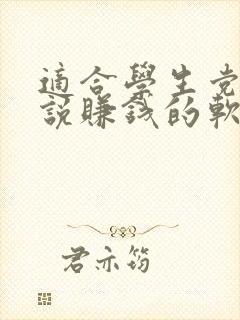 適合學生党
說賺錢的軟
君亦筠